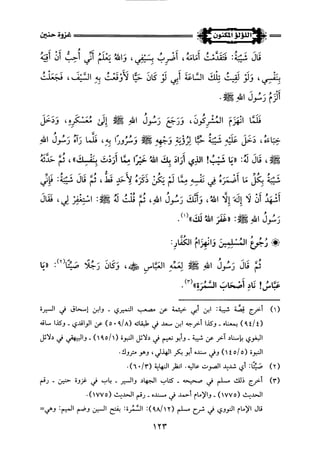 اللؤلؤ المكنون
غزوة حنين
قَالَ شَيْبَةُ: فَتَقَدَّمْتُ أَمَامَهُ، أَضْرِبُ بِسَيْفِي، وَاللهُ يَعْلَمُ أَنِّي أُحِبُّ أَنْ أَقِيَهُ
بِنَفْسِي، وَلَوْ لَقِيتُ تِلْكَ السَّاعَةَ أَبِي لَوْ كَانَ حَيًّا لَأَوْقَعْتُ بِهِ السَّيْفَ، فَجَعَلْتُ
أَلْزَمُ رَسُولَ اللهِ ﷺ.
فَلَمَّا انْهَزَمَ المُشْرِكُونَ، وَرَجَعَ رَسُولُ اللهِ ﷺ إِلَى مُعَسْكَرِهِ، وَدَخَلَ
خِبَاءَهُ، دَخَلَ عَلَيْهِ شَيْبَةُ حُبًّا لِرُؤْيَةِ وَجْهِهِ ﷺ وَسُرُورًا بِهِ، فَلَمَّا رَآهُ رَسُولُ اللهِ
ﷺ، قَالَ لَهُ: «يَا شَيْبُ! الَّذِي أَرَادَ بِكَ اللهُ خَيْرًا مِمَّا أَرَدْتَ بِنَفْسِكَ»، ثُمَّ حَدَّثَهُ
شَيْبَةُ بِكُلِّ مَا أَضْمَرَهُ فِي نَفْسِهِ مِمَّا لَمْ يَكُنْ ذَكَرَهُ لِأَحَدٍ قَطُّ، ثُمَّ قَالَ شَيْبَةُ: فَإِنِّي
أَشْهَدُ أَنْ لَا إِلَهَ إِلَّا اللهُ، وَأَنَّكَ رَسُولُ اللهِ، ثُمَّ قُلْتُ لَهُ ﷺ: اسْتَغْفِرْ لِي، فَقَالَ
رَسُولُ اللهِ ﷺ: «غَفَرَ اللهُ لَكَ»(١).
رُجُوعُ المُسْلِمِينَ وَانْهِزَامُ الكُفَّارِ:
ثُمَّ قَالَ رَسُولُ اللهِ ﷺ لِعَمِّهِ العَبَّاسِ، وَكَانَ رَجُلًا صَيِّتًا(٢): «يَا
عَبَّاسُ! نَادِ أَصْحَابَ السَّمُرَةِ»(٣).
(١) أخرج قصة شيبة: ابن أبي خيثمة عن مصعب النميري - وابن إسحاق في السيرة
(٩٤/٤) بمعناه - وكذا أخرجه ابن سعد في طبقاته (٥٠٩/٨) عن الواقدي - وكذا ساقه
البغوي بإسناد آخر عن شيبة - وأبو نعيم في دلائل النبوة (١٩٥/١) - والبيهقي في دلائل
النبوة (١٤٥/٥) وفي سنده أبو بكر الهذلي، وهو متروك.
(٢) صَيِّتًا: أي شديد الصوت عاليه. انظر النهاية (٦٠/٣).
(٣) أخرج ذلك مسلم في صحيحه - كتاب الجهاد والسير - باب في غزوة حنين - رقم
الحديث (١٧٧٥) - والإمام أحمد في مسنده - رقم الحديث (١٧٧٥).
قال الإمام النووي في شرح مسلم (٩٨/١٢): السَّمُرَة: بفتح السين وضم الميم: وهي=
١٢٣